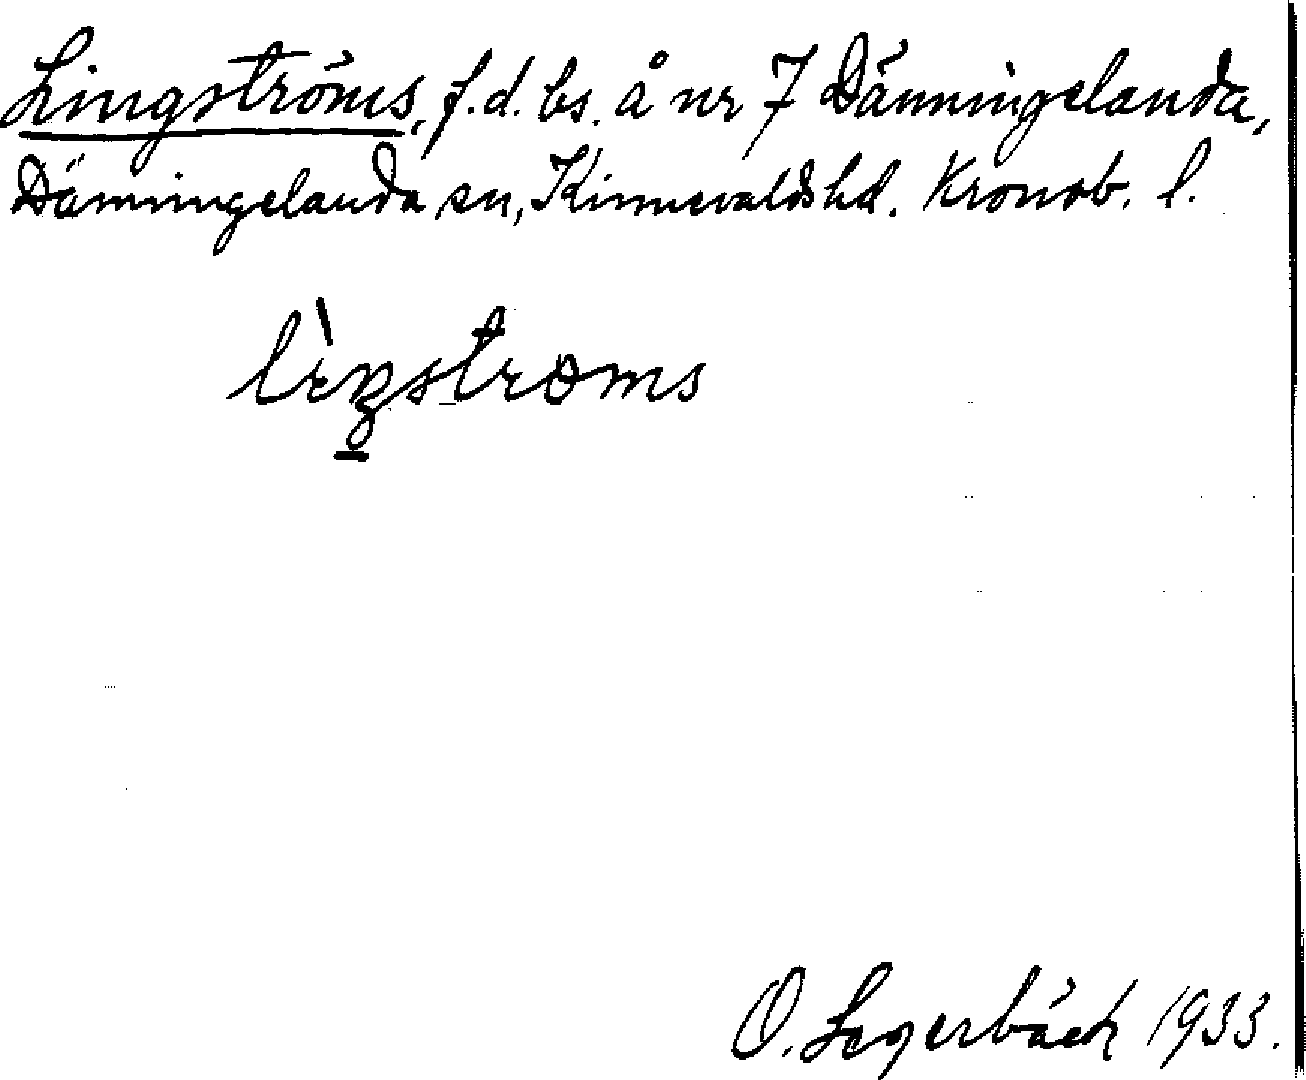 Lingströms, f.d. bs. å nr 7 Dänningelanda,
Dänningelanda sn, Kinnevalds hd. Kronob. l.
O. Segerbäck 1933.